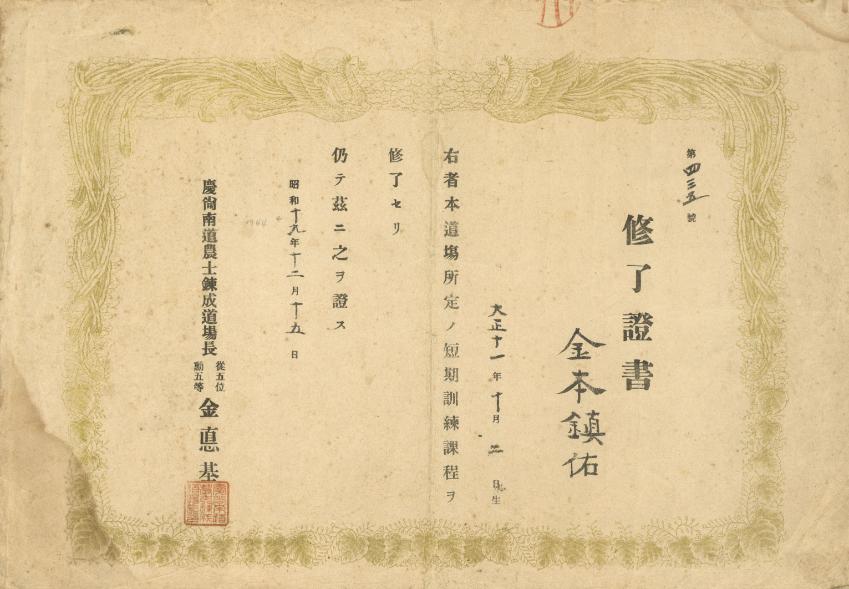 第四三五號
修了證書
金本鎮佑
大正十一年十月二日生
右者本道場所定ノ短期訓練課程ヲ
修了セリ
仍テ茲ニ之ヲ證ス
昭和十九年十二月十五日
慶尙南道農士鍊成道場長
從五位
勳五等
金悳基